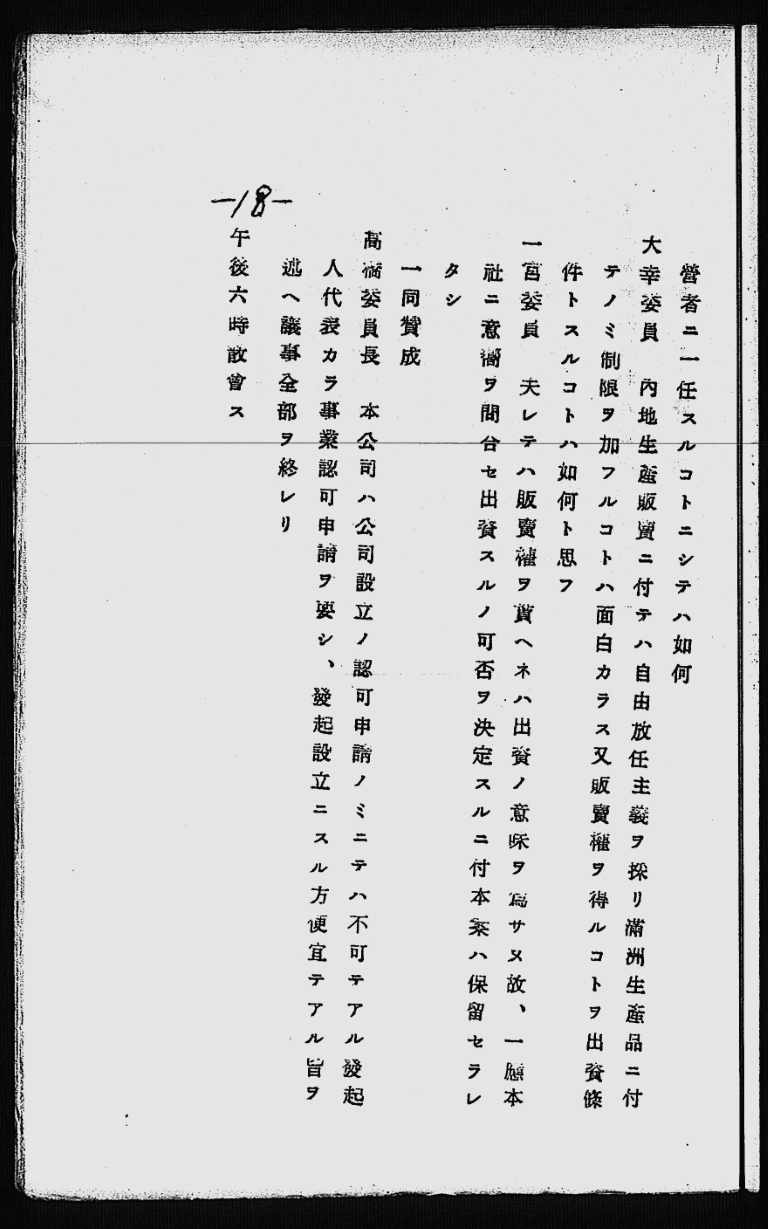 營者ニ一任スルコトニシテハ如何
大幸委員　內地生產販賣ニ付テハ自由放任主義ヲ採リ滿洲生產品ニ付
テノミ制限ヲ加フルコトハ面白カラス又販賣權ヲ得ルコトヲ出資條
件トスルコトハ如何ト思フ
一宮委員　夫レテハ販賣權ヲ貰ヘネハ出資ノ意味ヲ爲サヌ故、一應本
社ニ意嚮ヲ問合セ出資スルノ可否ヲ決定スルニ付本案ハ保留セラレ
タシ
一同贊成
高橋委員長　本公司ハ公司設立ノ認可申請ノミニテハ不可テアル發起
人代表カラ事業認可申請ヲ要シ、發起設立ニスル方便宜テアル旨ヲ
述ヘ議事全部ヲ終レリ
午後六時散會ス
—18—